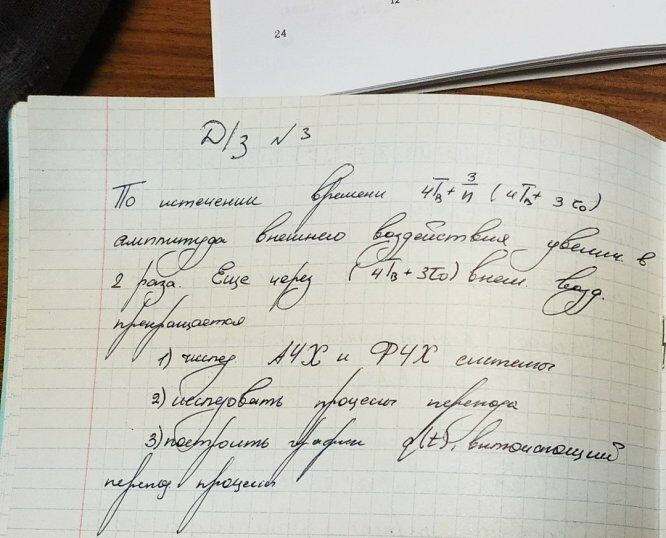 12
24
Д/з №3
По истечении времени 4Tв + 3/n (4Tв + 3τ0)
амплитуда внешнего воздействия увелич. в
2 раза. Еще через (4Tв + 3τ0) внеш. возд.
прекращается
1) исслед АЧХ и ФЧХ системы
2) исследовать процессы перехода
3) построить график q(t), включающий
переход. процессы